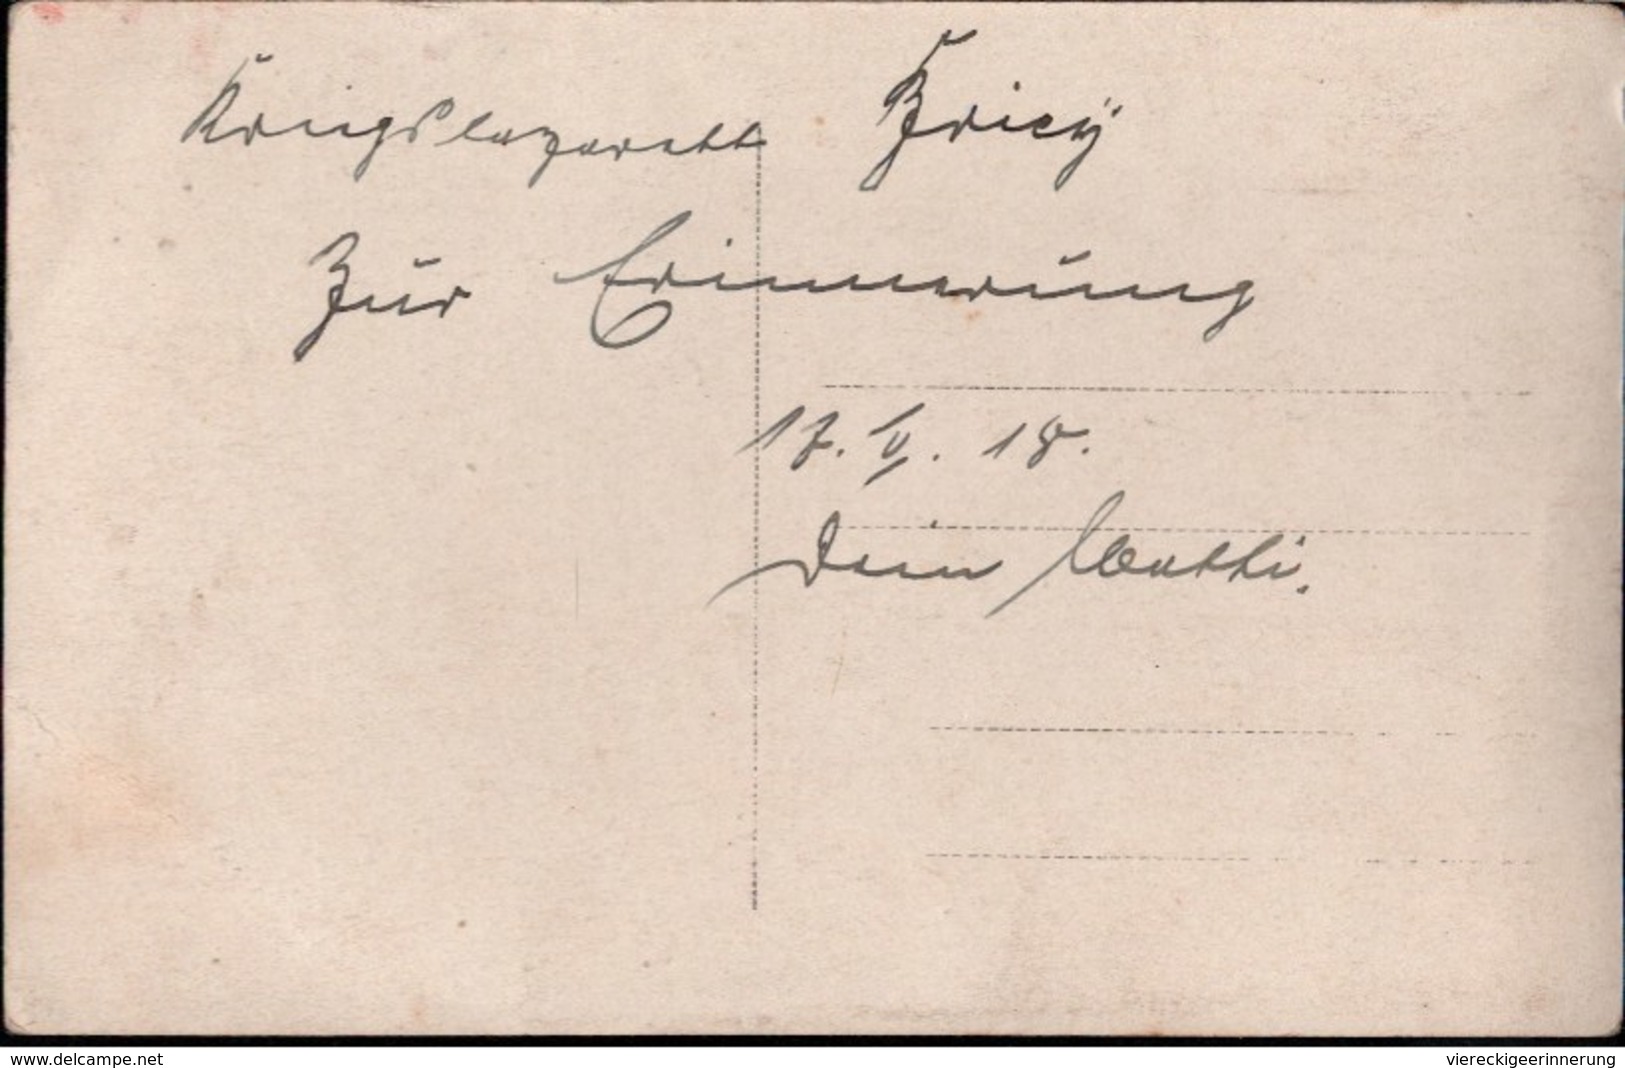 Kriegslazarett Briey
Zur Erinnerung
17. V. 18.
Dein Matthi.
www.delcampe.net
viereckigeerinnerung